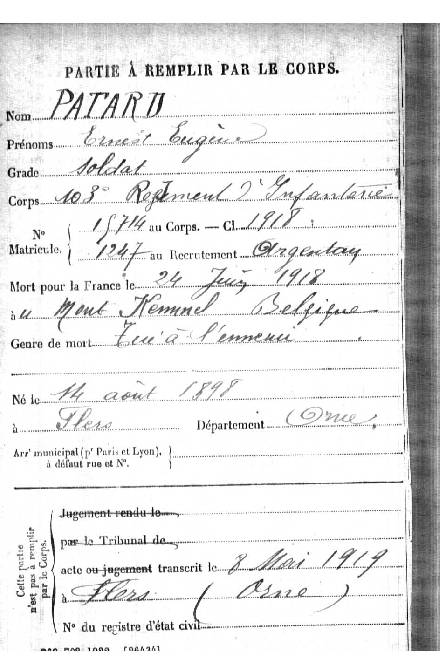 PARTIE À REMPLIR PAR LE CORPS.
Nom PATARD
Prénoms Ernest Eugène
Grade soldat
Corps 103e Régiment d'Infanterie
N° 15714 au Corps. — Cl. 1918
Matricule. 1247 au Recrutement Argentan
Mort pour la France le 24 Juin 1918
à u Mont Kemmel Belgique
Genre de mort Tué à l'ennemi
Né le 14 août 1898
à Flers Département Orne
Arrt municipal (pr Paris et Lyon),
à défaut rue et N°.
Cette partie
n'est pas à remplir
par le Corps.
Jugement rendu le
par le Tribunal de
acte ou jugement transcrit le 8 Mai 1919
à Flers (Orne)
N° du registre d'état civil